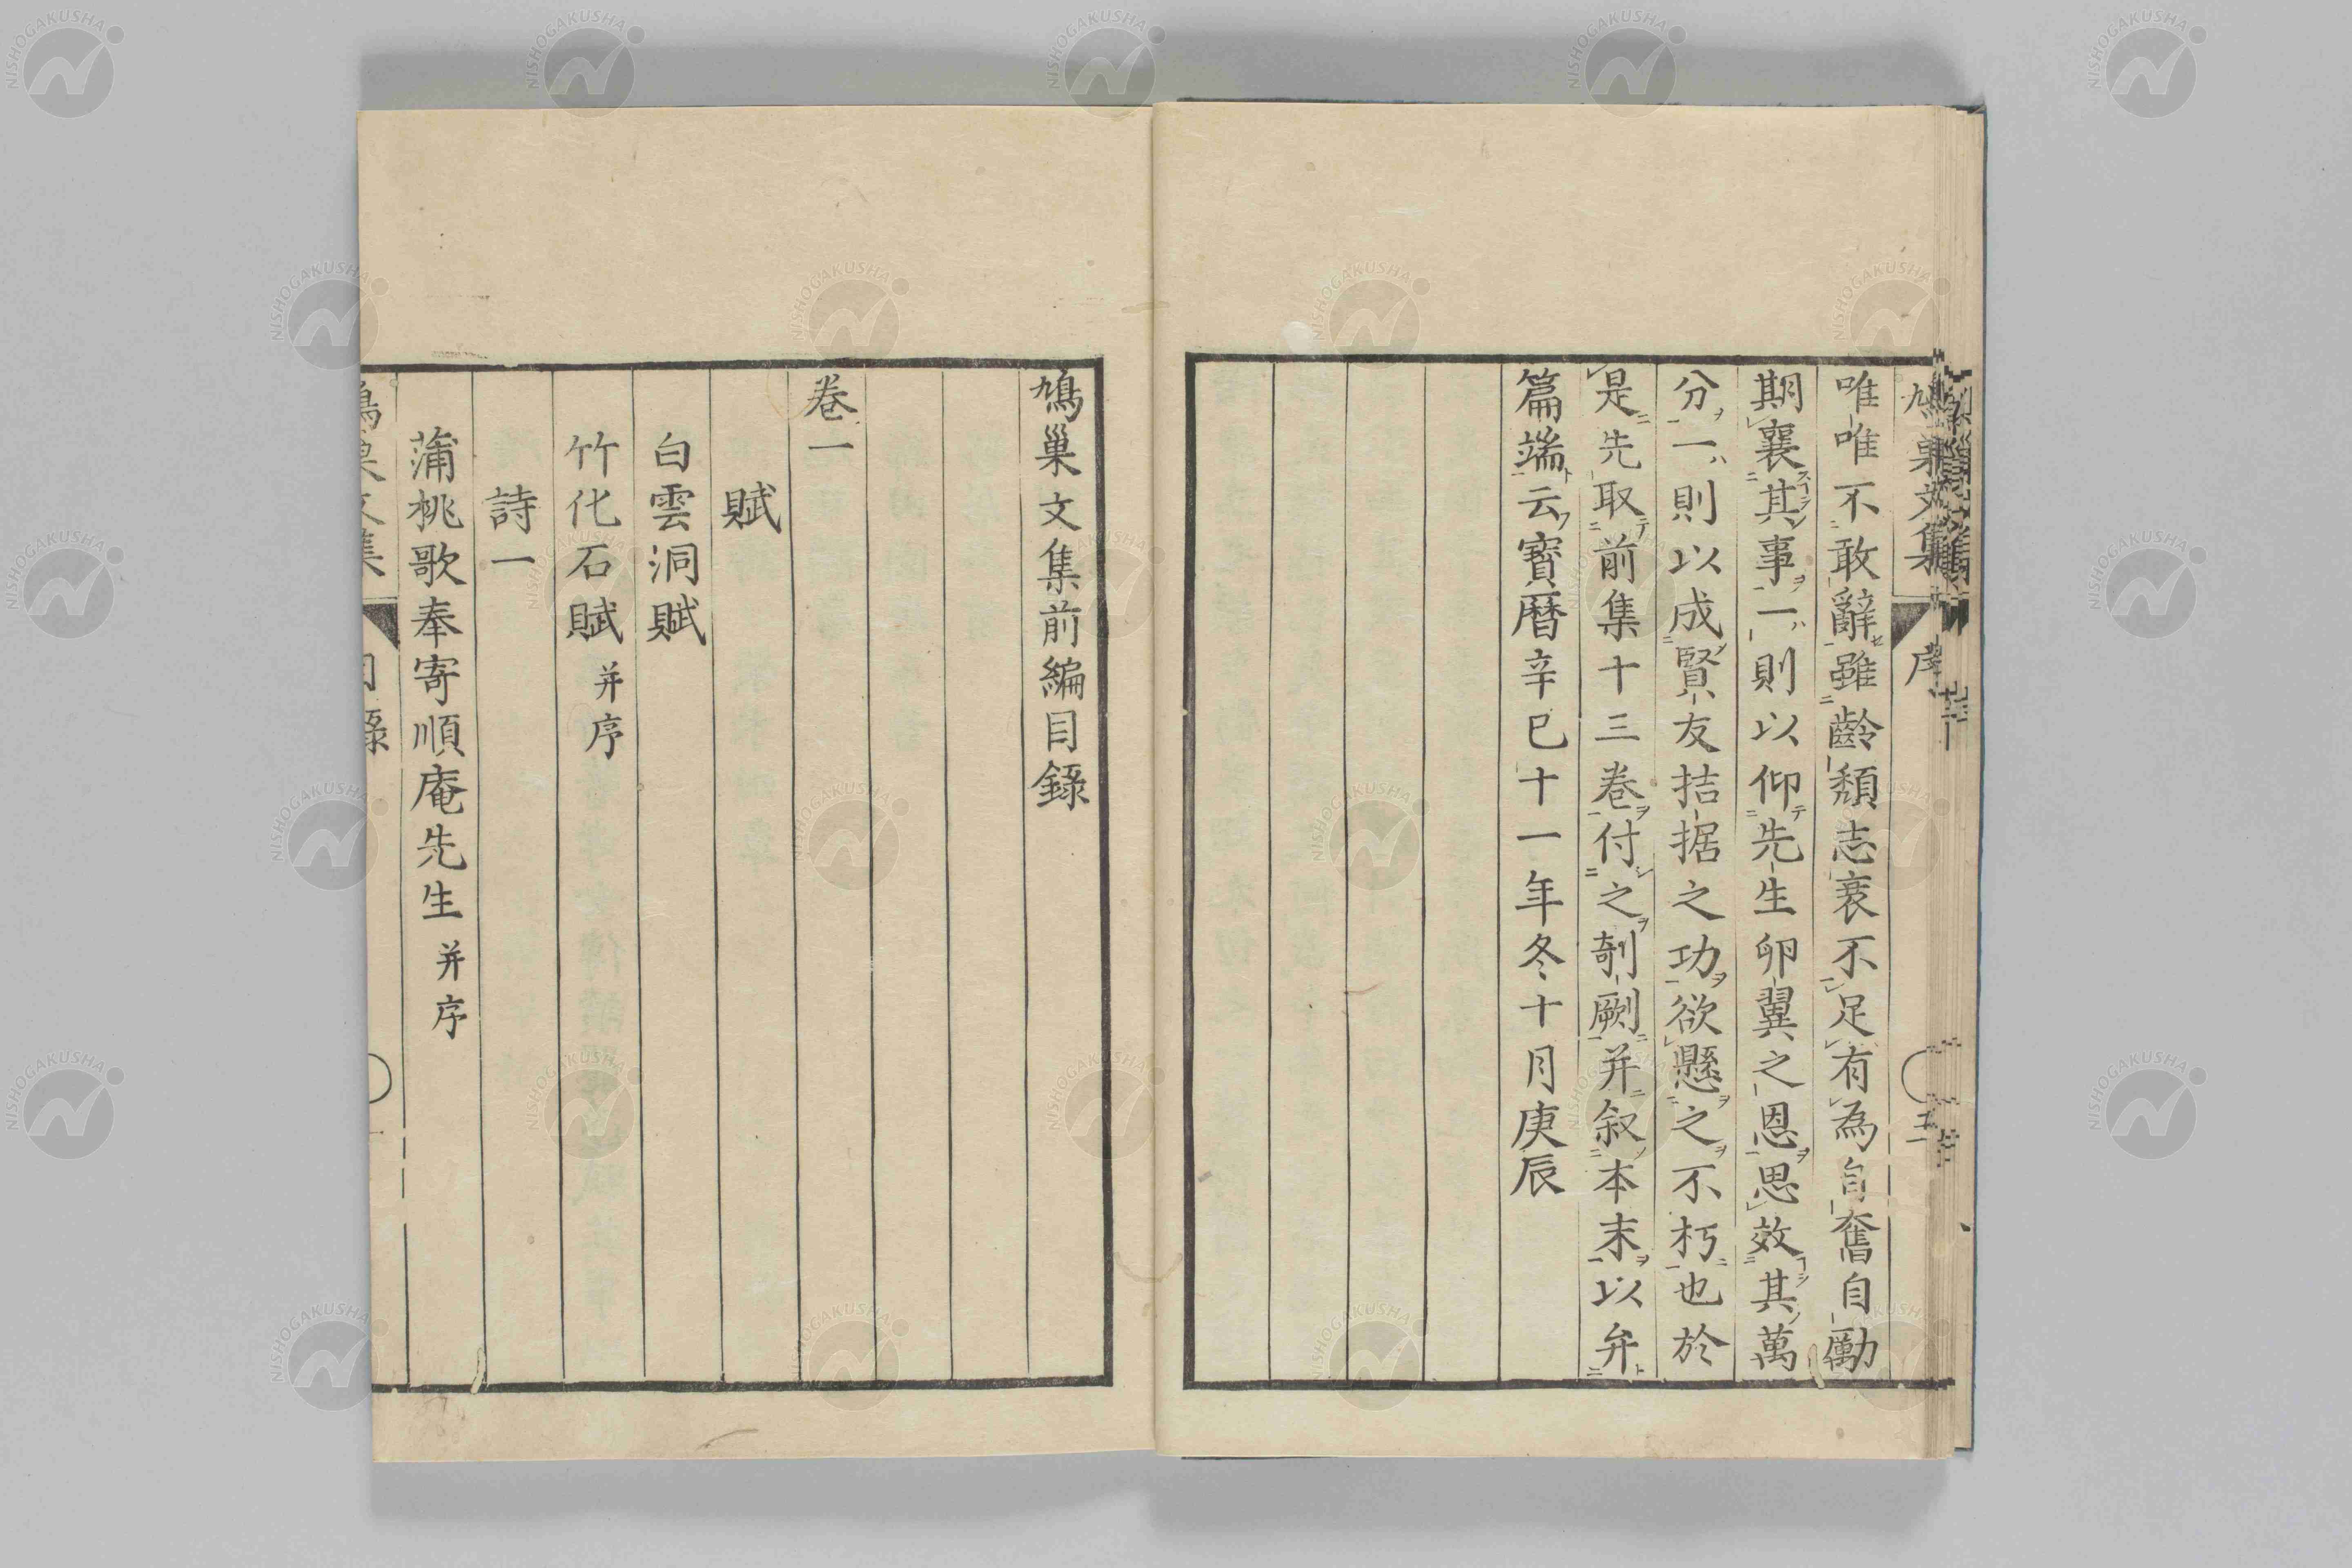 鳩巢文集
序
五
唯唯不敢辭雖齡頽志衰不足有為自奮自勵
期襄其事一則以仰先生卵翼之恩思效其萬
分一則以成賢友拮据之功欲懸之不朽也於
是先取前集十三卷付之剞劂并叙本末以弁
篇端云寶曆辛巳十一年冬十月庚辰
鳩巢文集前編目錄
卷一
賦
白雲洞賦
竹化石賦 并序
詩一
蒲桃歌奉寄順庵先生 并序
鳩巢文集
目錄
一
NISHOGAKUSHA